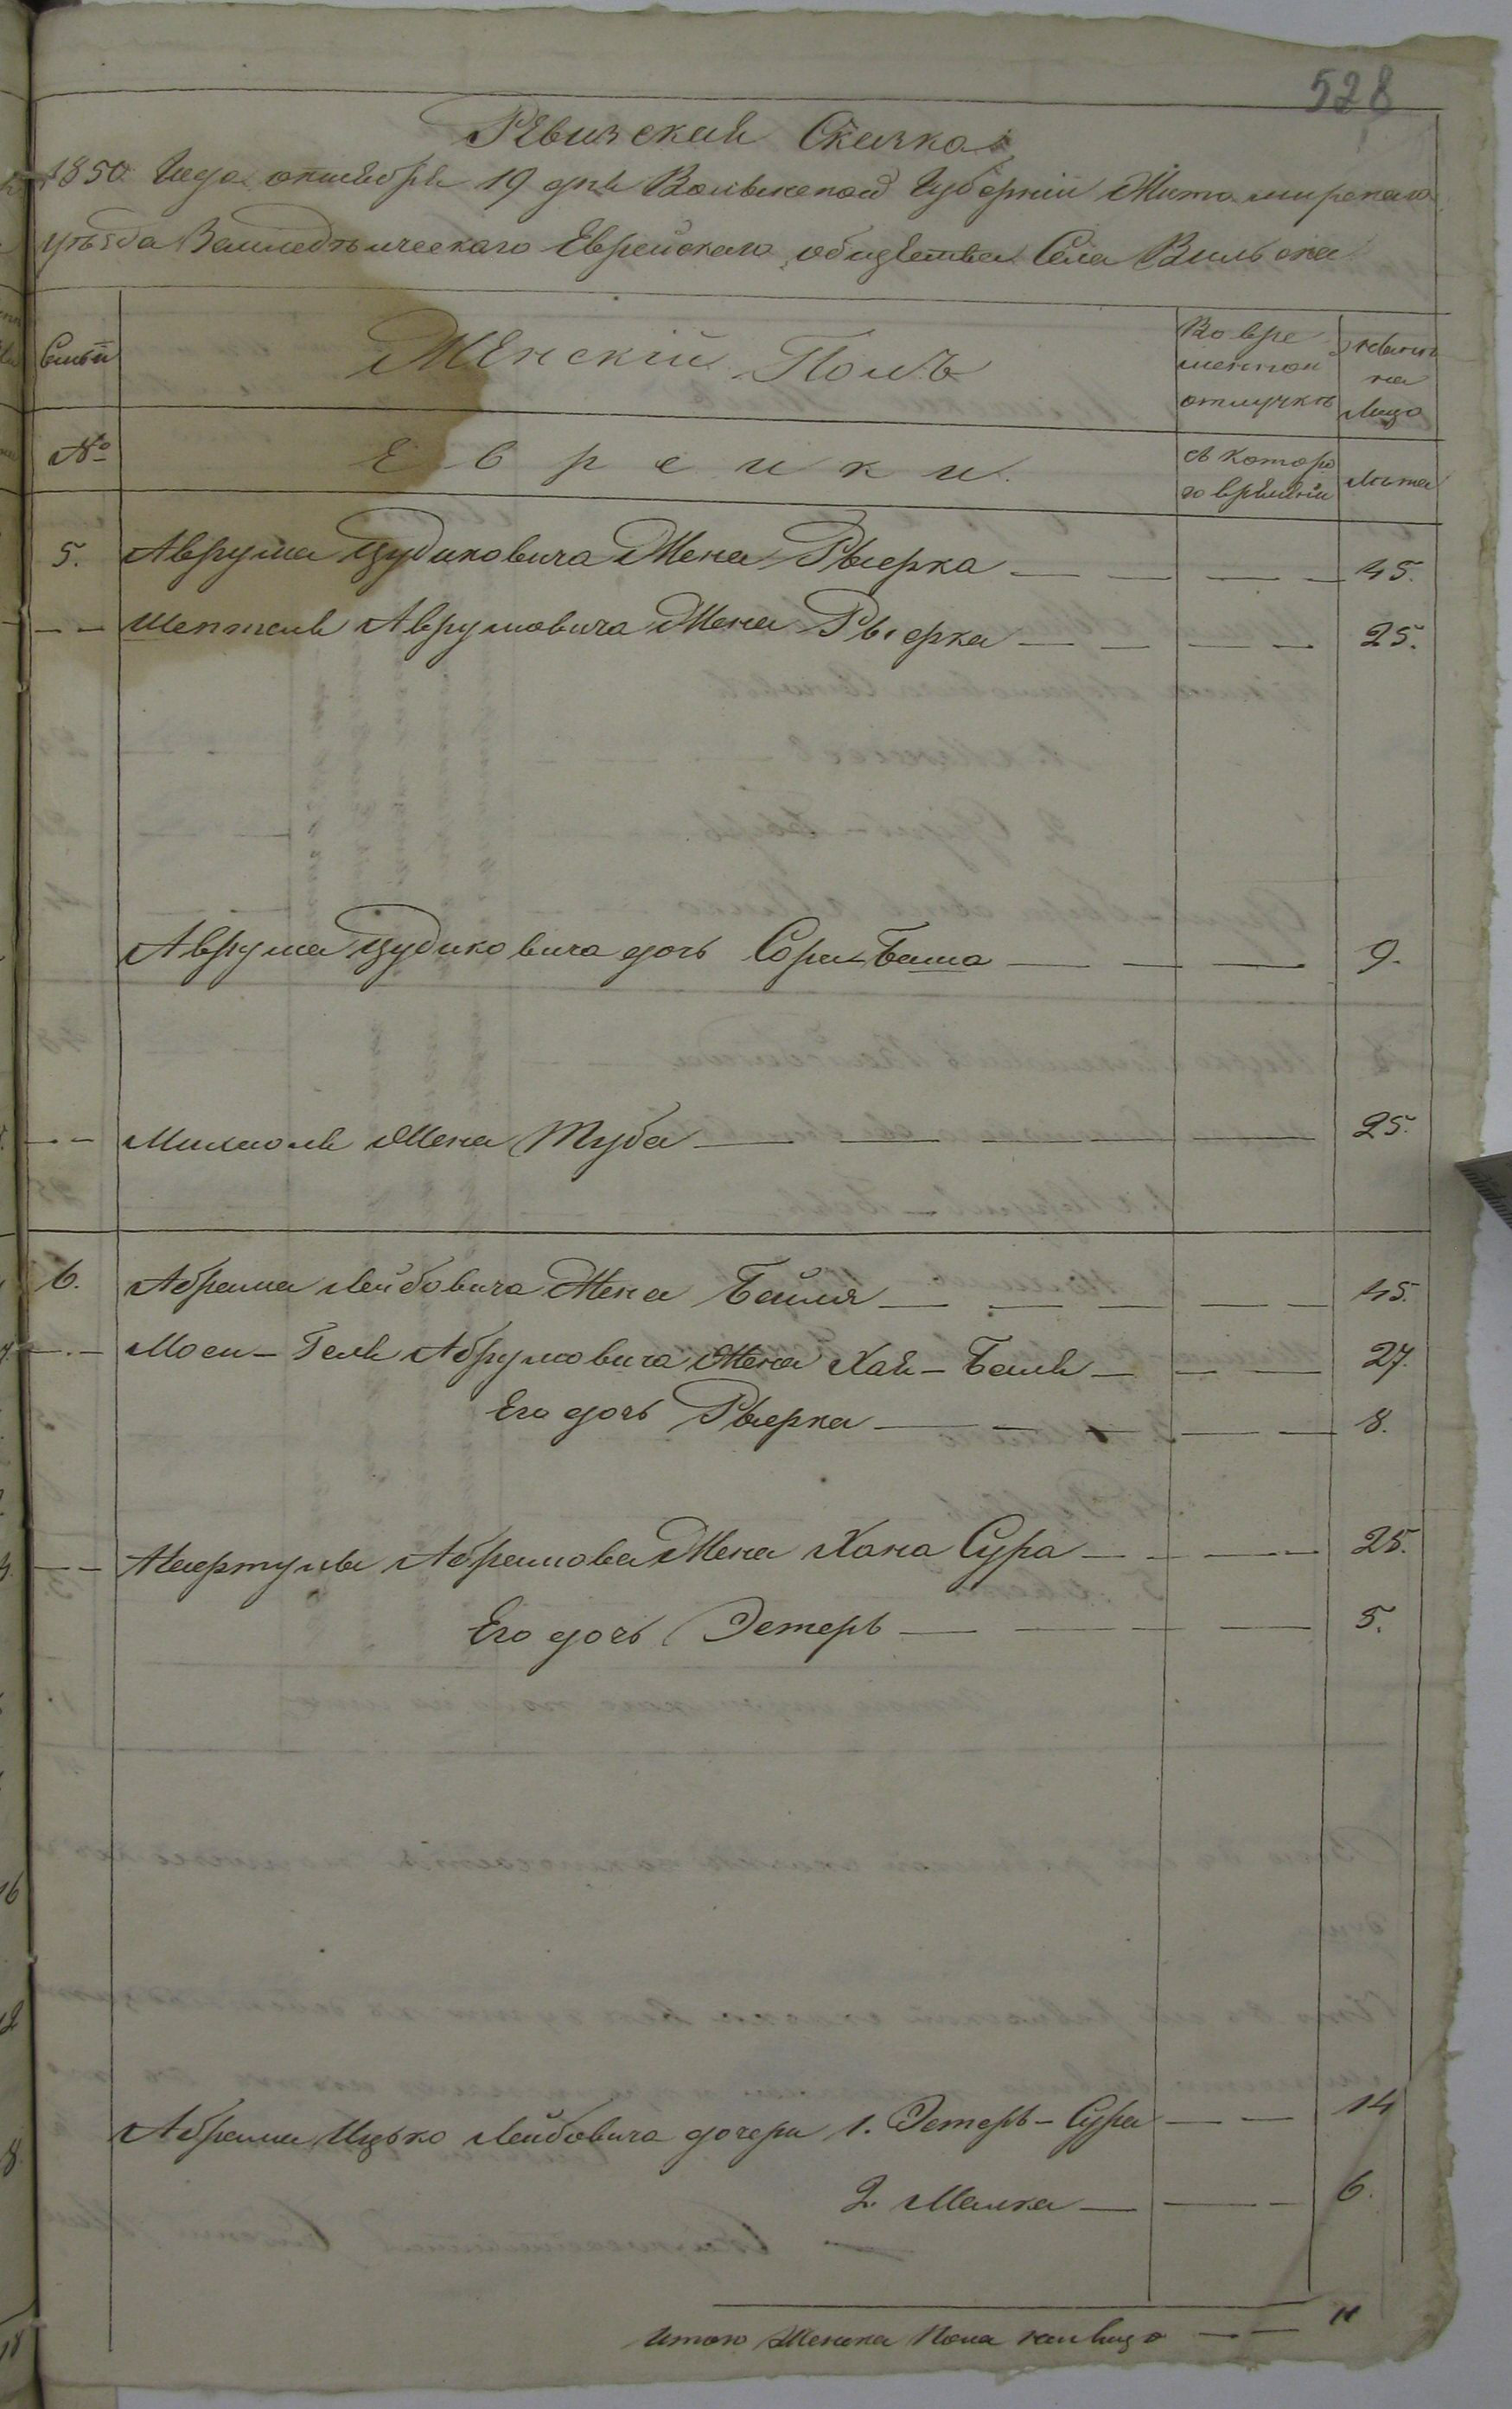 528
Ревизская Сказка
1850 Года октября 19 дня Волынской Губернiи Житомирскаго
уѣзда Еврейскаго общества Села Вильска
Семьи
Женскiй Полъ
Во вре
менной
отлучкѣ
на
лицо
№
Еврейки
съ которо
го времяни
лѣта
5. Аврума Цудиковича Жена Рыерка — — — — 45.
— — Шепселя Аврумовича Жена Рыерка — — — — 25.
Аврума Цудиковича дочь Сора-Баша — — — 9.
— — Жена Туба — — — — — — 25.
6. Абрама Лейбовича Жена Бейля — — — — — — 45.
— — Моси-Геля Абрумовича Жена Хая-Бейля — — — 27.
Его дочь Рыерка — — — — — 8.
— — Абрамова Жена Хана Сура — — — — 25.
Его дочь Эстерь — — — — 5.
Абрама Ицько Лейбовича дочери 1. Эстерь-Сура — — 14
2. Малка — — — 6.
Итого Женска Пола на лицо — — 11